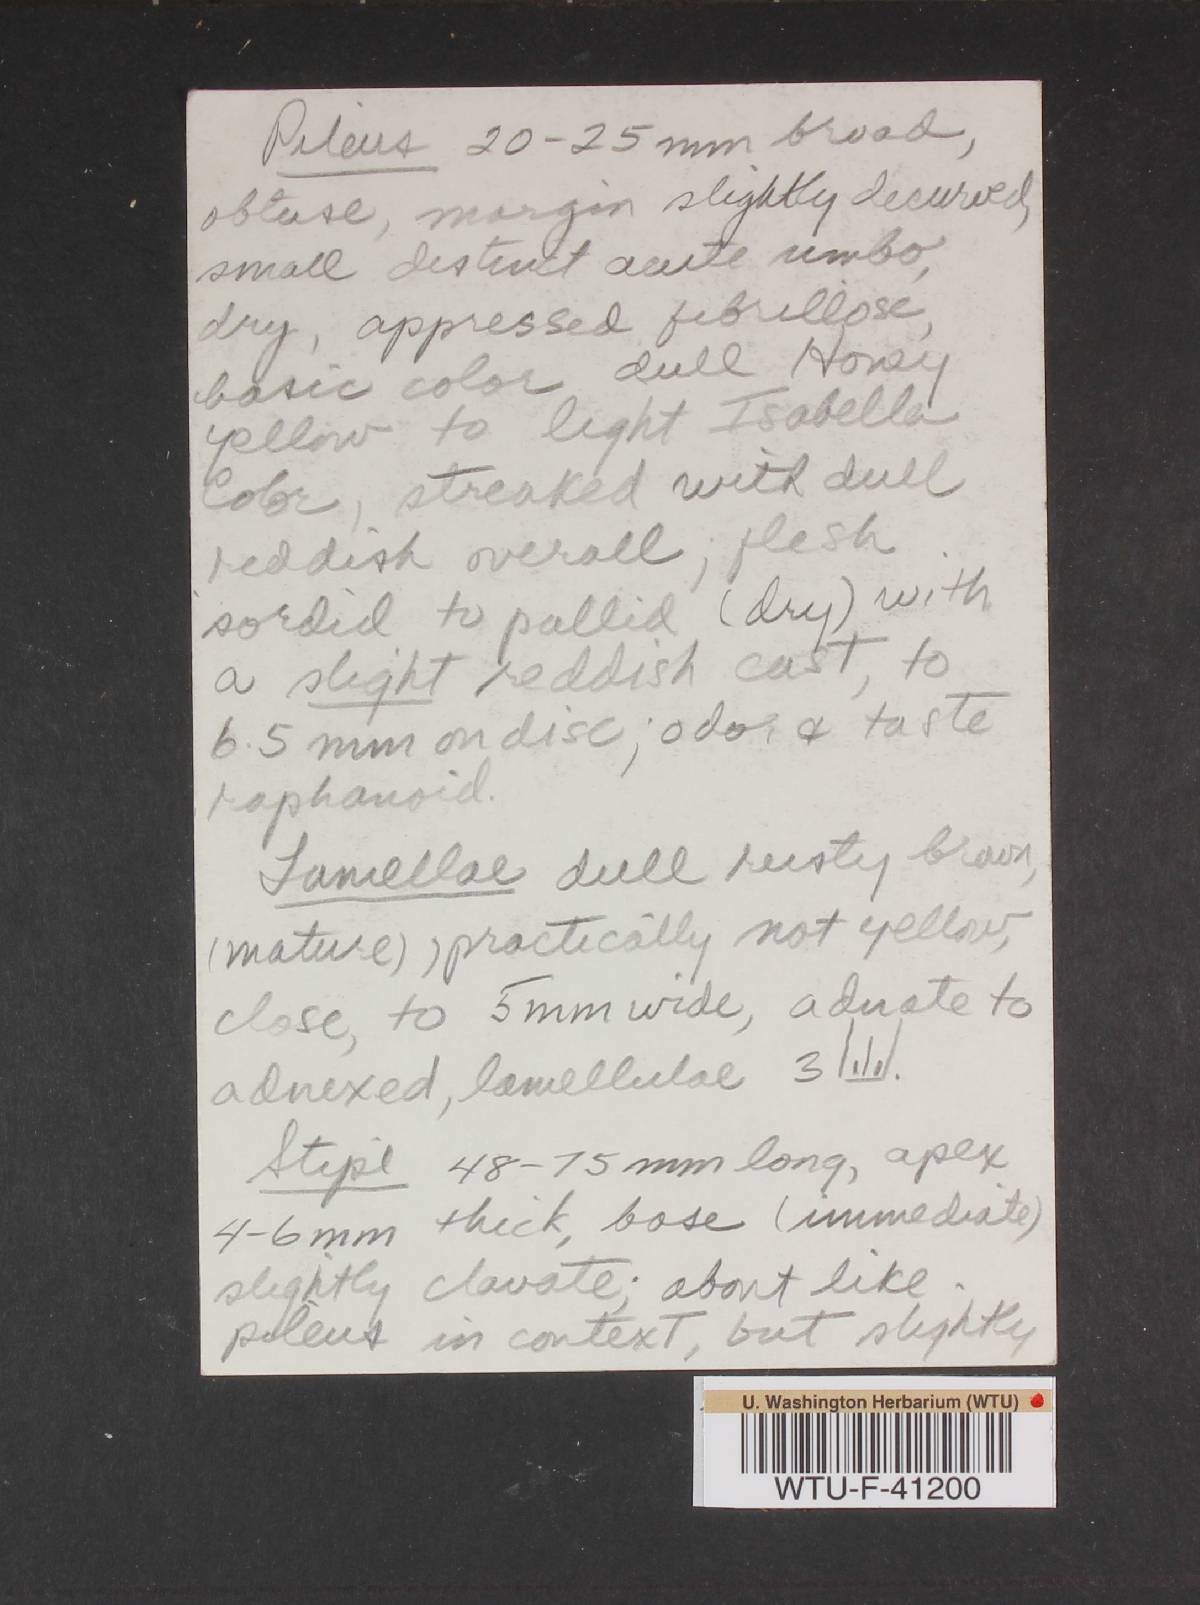 Pileus 20-25 mm broad,
obtuse, margin slightly decurved,
small distinct acute umbo,
dry, appressed fibrillose,
basic color dull Honey
yellow to light Isabella
Color, streaked with dull
reddish overall; flesh
sordid to pallid (dry) with
a slight reddish cast, to
6.5 mm on disc; odor & taste
raphanoid.
Lamellae dull rusty brown,
(mature), practically not yellow,
close, to 5mm wide, adnate to
adnexed, lamellulae 3
Stipe 48-75 mm long, apex
4-6 mm thick, base (immediate)
slightly clavate; about like
pileus in context, but slightly
U. Washington Herbarium (WTU)
WTU-F-41200